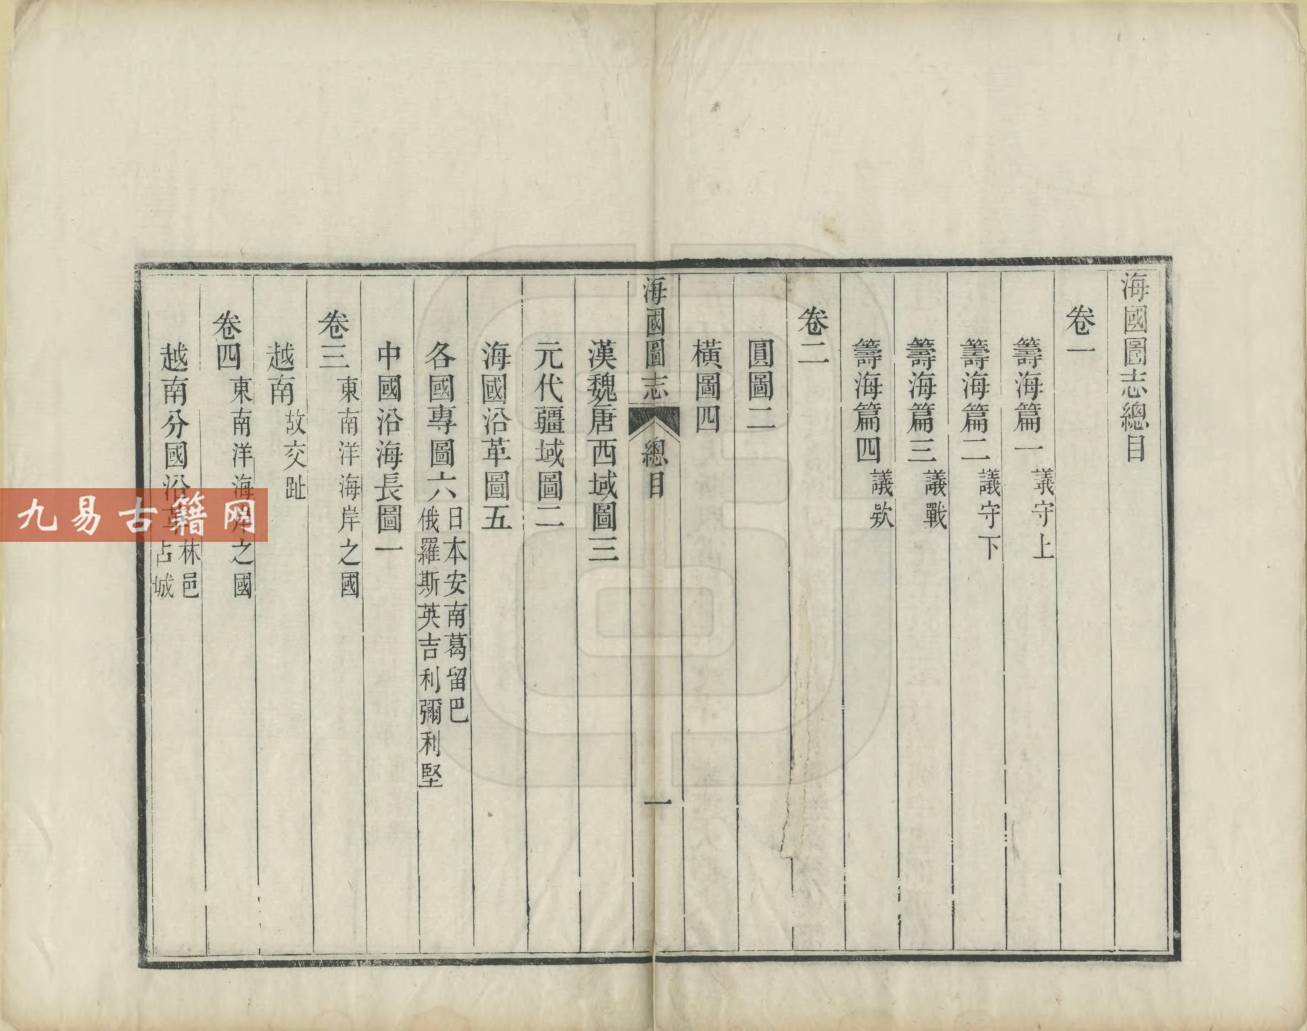 海國圖志總目
卷一
籌海篇一 議守上
籌海篇二 議守下
籌海篇三 議戰
籌海篇四 議欵
卷二
圓圖二
橫圖四
海國圖志 總目 一
漢魏唐西域圖三
元代疆域圖二
海國沿革圖五
各國專圖六 日本安南葛留巴
俄羅斯英吉利彌利堅
中國沿海長圖一
卷三 東南洋海岸之國
越南 故交趾
卷四 東南洋海岸之國
越南分國沿革 林邑
占城
九易古籍网